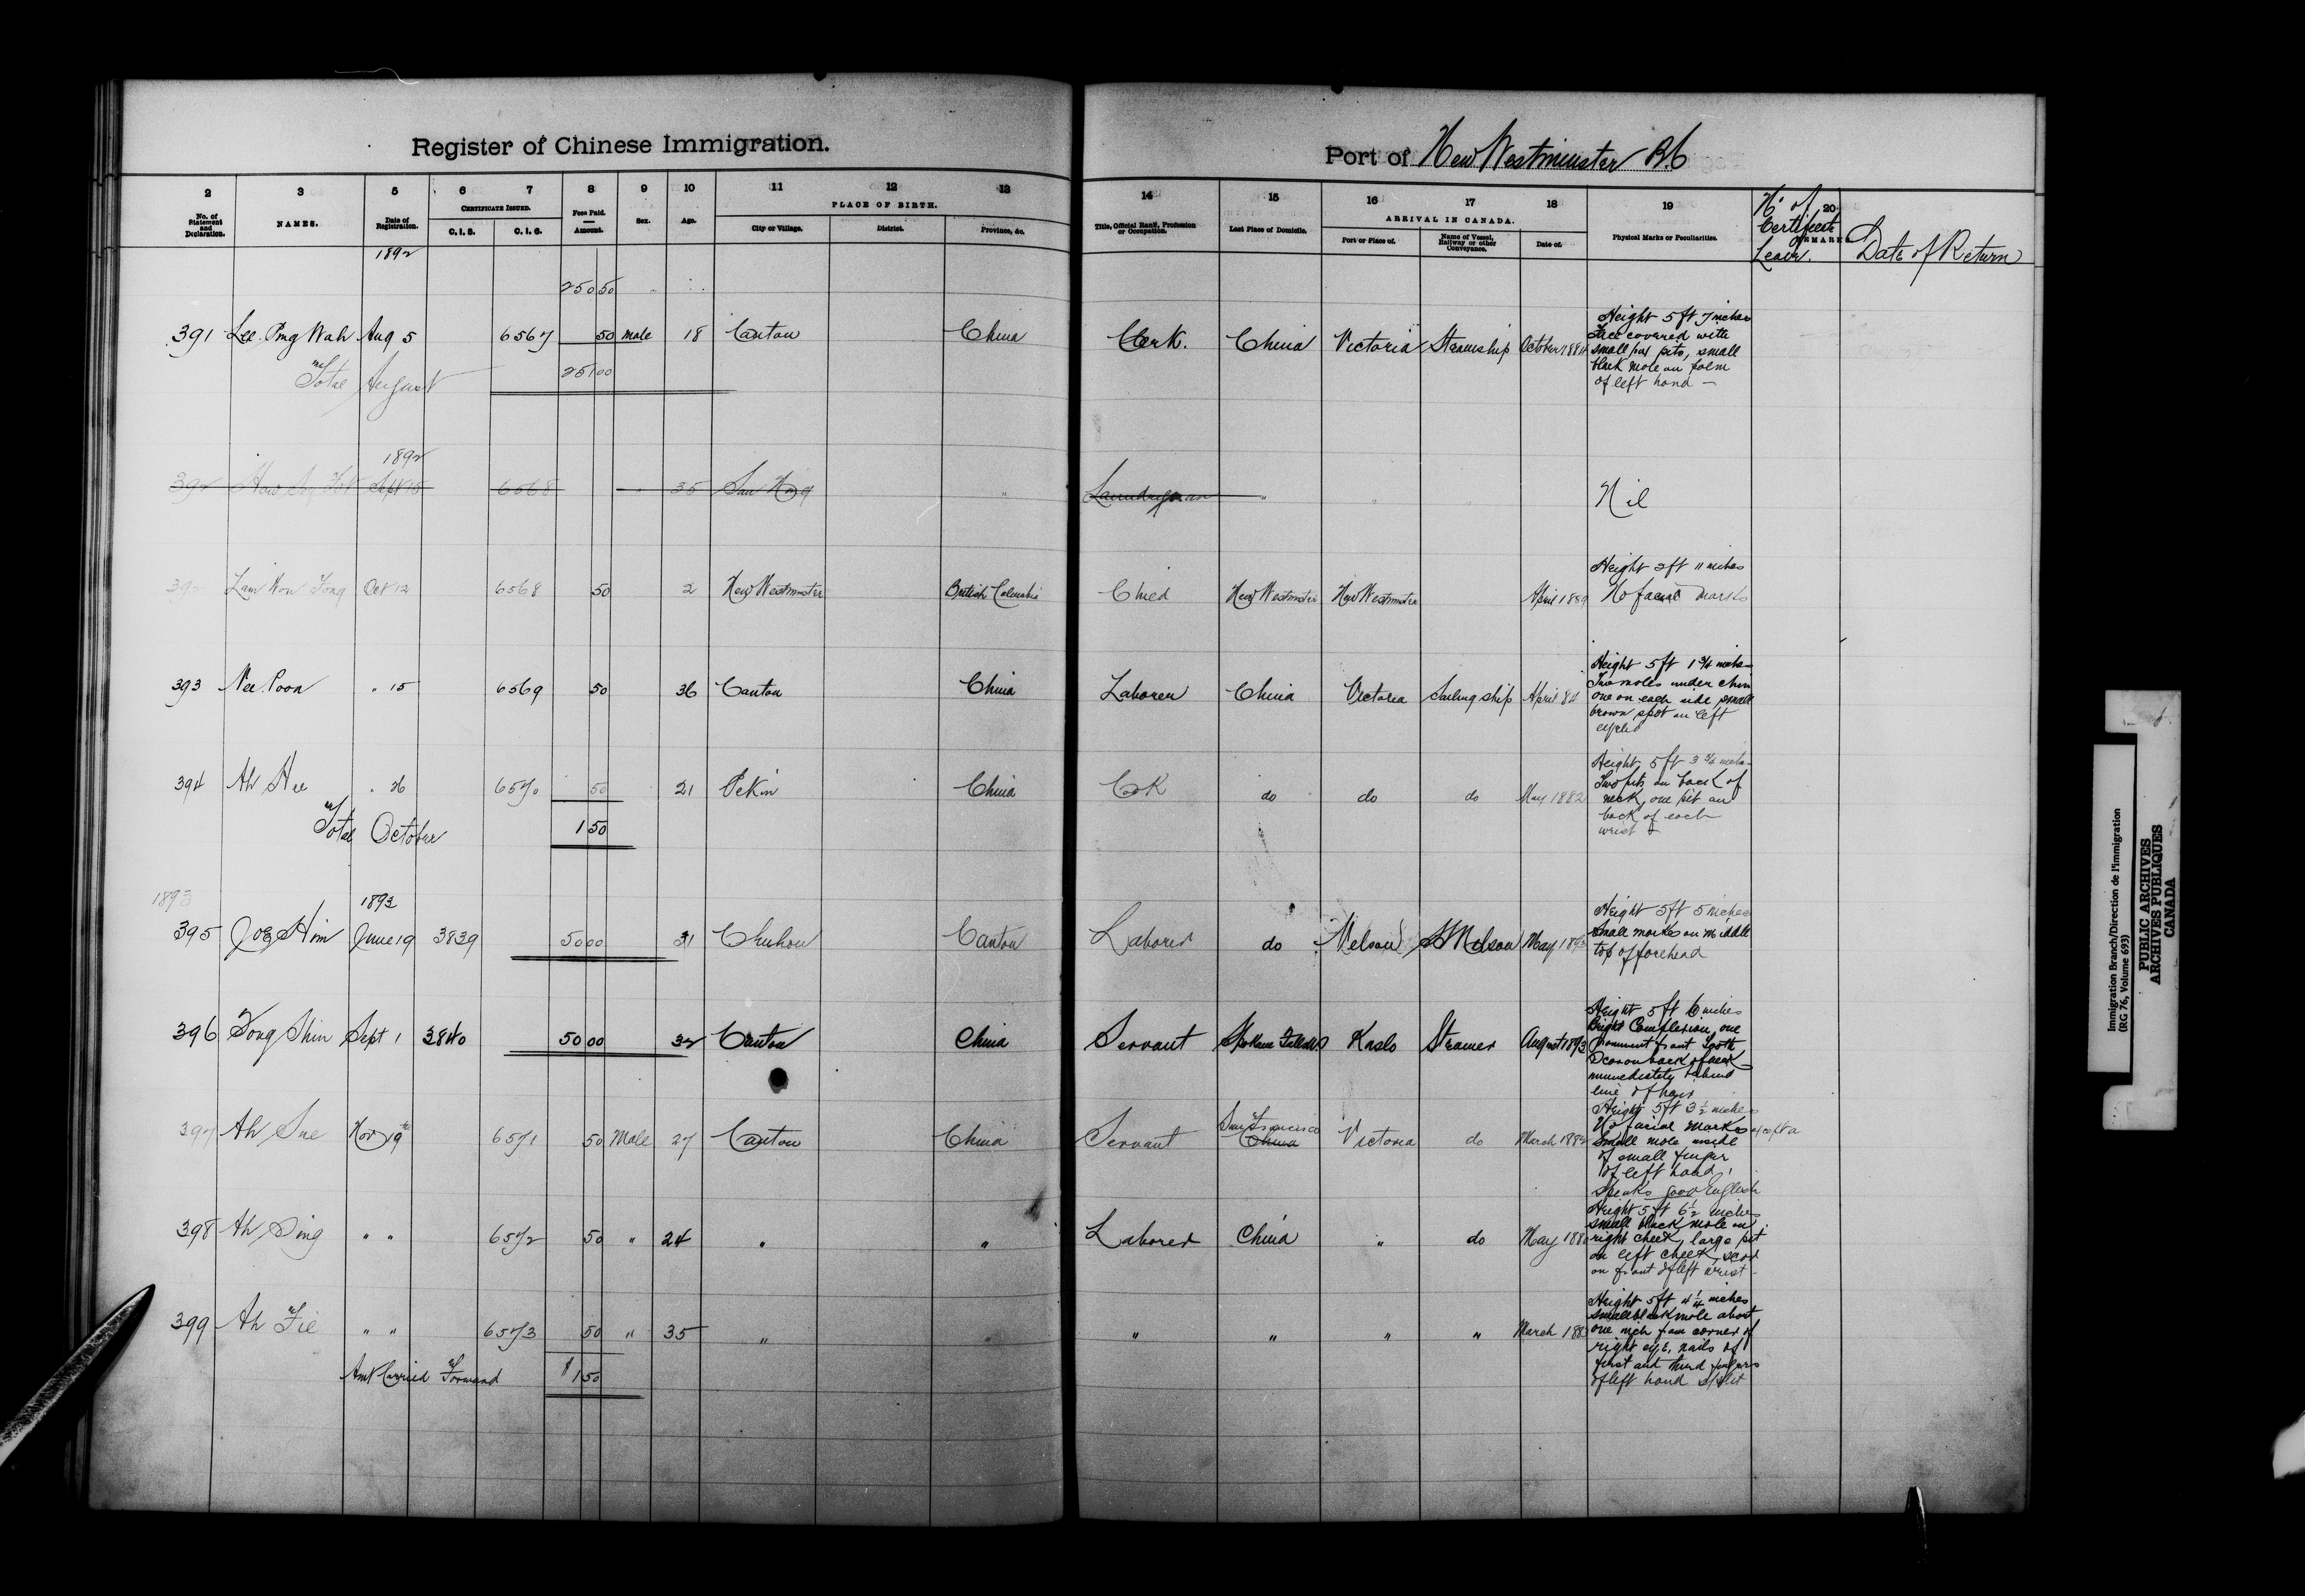 Register of Chinese Immigration.
Port of New Westminster BC
2 3 5 6 7 8 9 10 11 12 13 14 15 16 17 18 19 20
No. of Statement and Declaration. NAMES. Date of Registration. CERTIFICATE ISSUED. C. I. 5. C. I. 6. Fees Paid. Amount. Sex. Age. PLACE OF BIRTH. City or Village. District. Province, &c. Title, Official Rank, Profession or Occupation. Last Place of Domicile. ARRIVAL IN CANADA. Port or Place of. Name of Vessel, Railway or other Conveyance. Date of. Physical Marks or Peculiarities. REMARKS
No. of Certificate Leave. Date of Return
1892
250 50
391 Lee Pmg Wah Aug 5 6567 50 male 18 Canton China Clerk. China Victoria Steamship October 1884
Height 5 ft 7 inches
Face covered with
small pox pits, small
black mole on palm
of left hand —
Total August 251 00
1892
392 Sept 15 6568 35 Laundryman " " Nil
392 Lam Won Fong Oct 12 6568 50 2 New Westminster British Columbia Child New Westminster New Westminster April 1889
Height 2 ft 11 inches
No facial marks
393 Nee Poon " 15 6569 50 36 Canton China Laborer China Victoria Sailing ship April 84
Height 5 ft 1 3/4 inches
Two moles under chin
one on each side, small
brown spot on left
eyelid
394 Ah Hee " 26 6570 50 21 Pekin China Cook do do do May 1882
Height 5 ft 3 3/4 inches
Two pits on back of
neck, one pit on
back of each
wrist
Total October 1 50
1893
1893
395 Joe Him June 19 3839 50 00 31 Canton Laborer do Nelson SS Nelson May 1893
Height 5 ft 5 inches
Small marks on middle
top of forehead
396 Fong Shin Sept 1 3840 50 00 32 Canton China Servant Spokane Falls Kaslo Steamer August 1893
Height 5 ft 6 inches
Bright Complexion, one
prominent front tooth
Scar on back of neck
immediately behind
line of hair
397 Ah Sue Nov 19th 6571 50 Male 27 Canton China Servant San Francisco China Victoria do March 1882
Height 5 ft 3 1/2 inches
No facial marks except a
small mole inside
of small finger
of left hand,
speaks good English
398 Ah Sing " " 6572 50 " 24 " " Laborer China " do May 188
Height 5 ft 6 1/2 inches
small black mole on
right cheek, large pit
on left cheek, scar
on front of left wrist
399 Ah Fie " " 6573 50 " 35 " " " " " " March 188
Height 5 ft 4 1/4 inches
small black mole about
one inch from corner of
right eye, nails of
first and third fingers
of left hand split
Amt Carried Forward $ 1 50
Immigration Branch/Direction de l'immigration
(RG 76, Volume 693)
PUBLIC ARCHIVES
ARCHIVES PUBLIQUES
CANADA